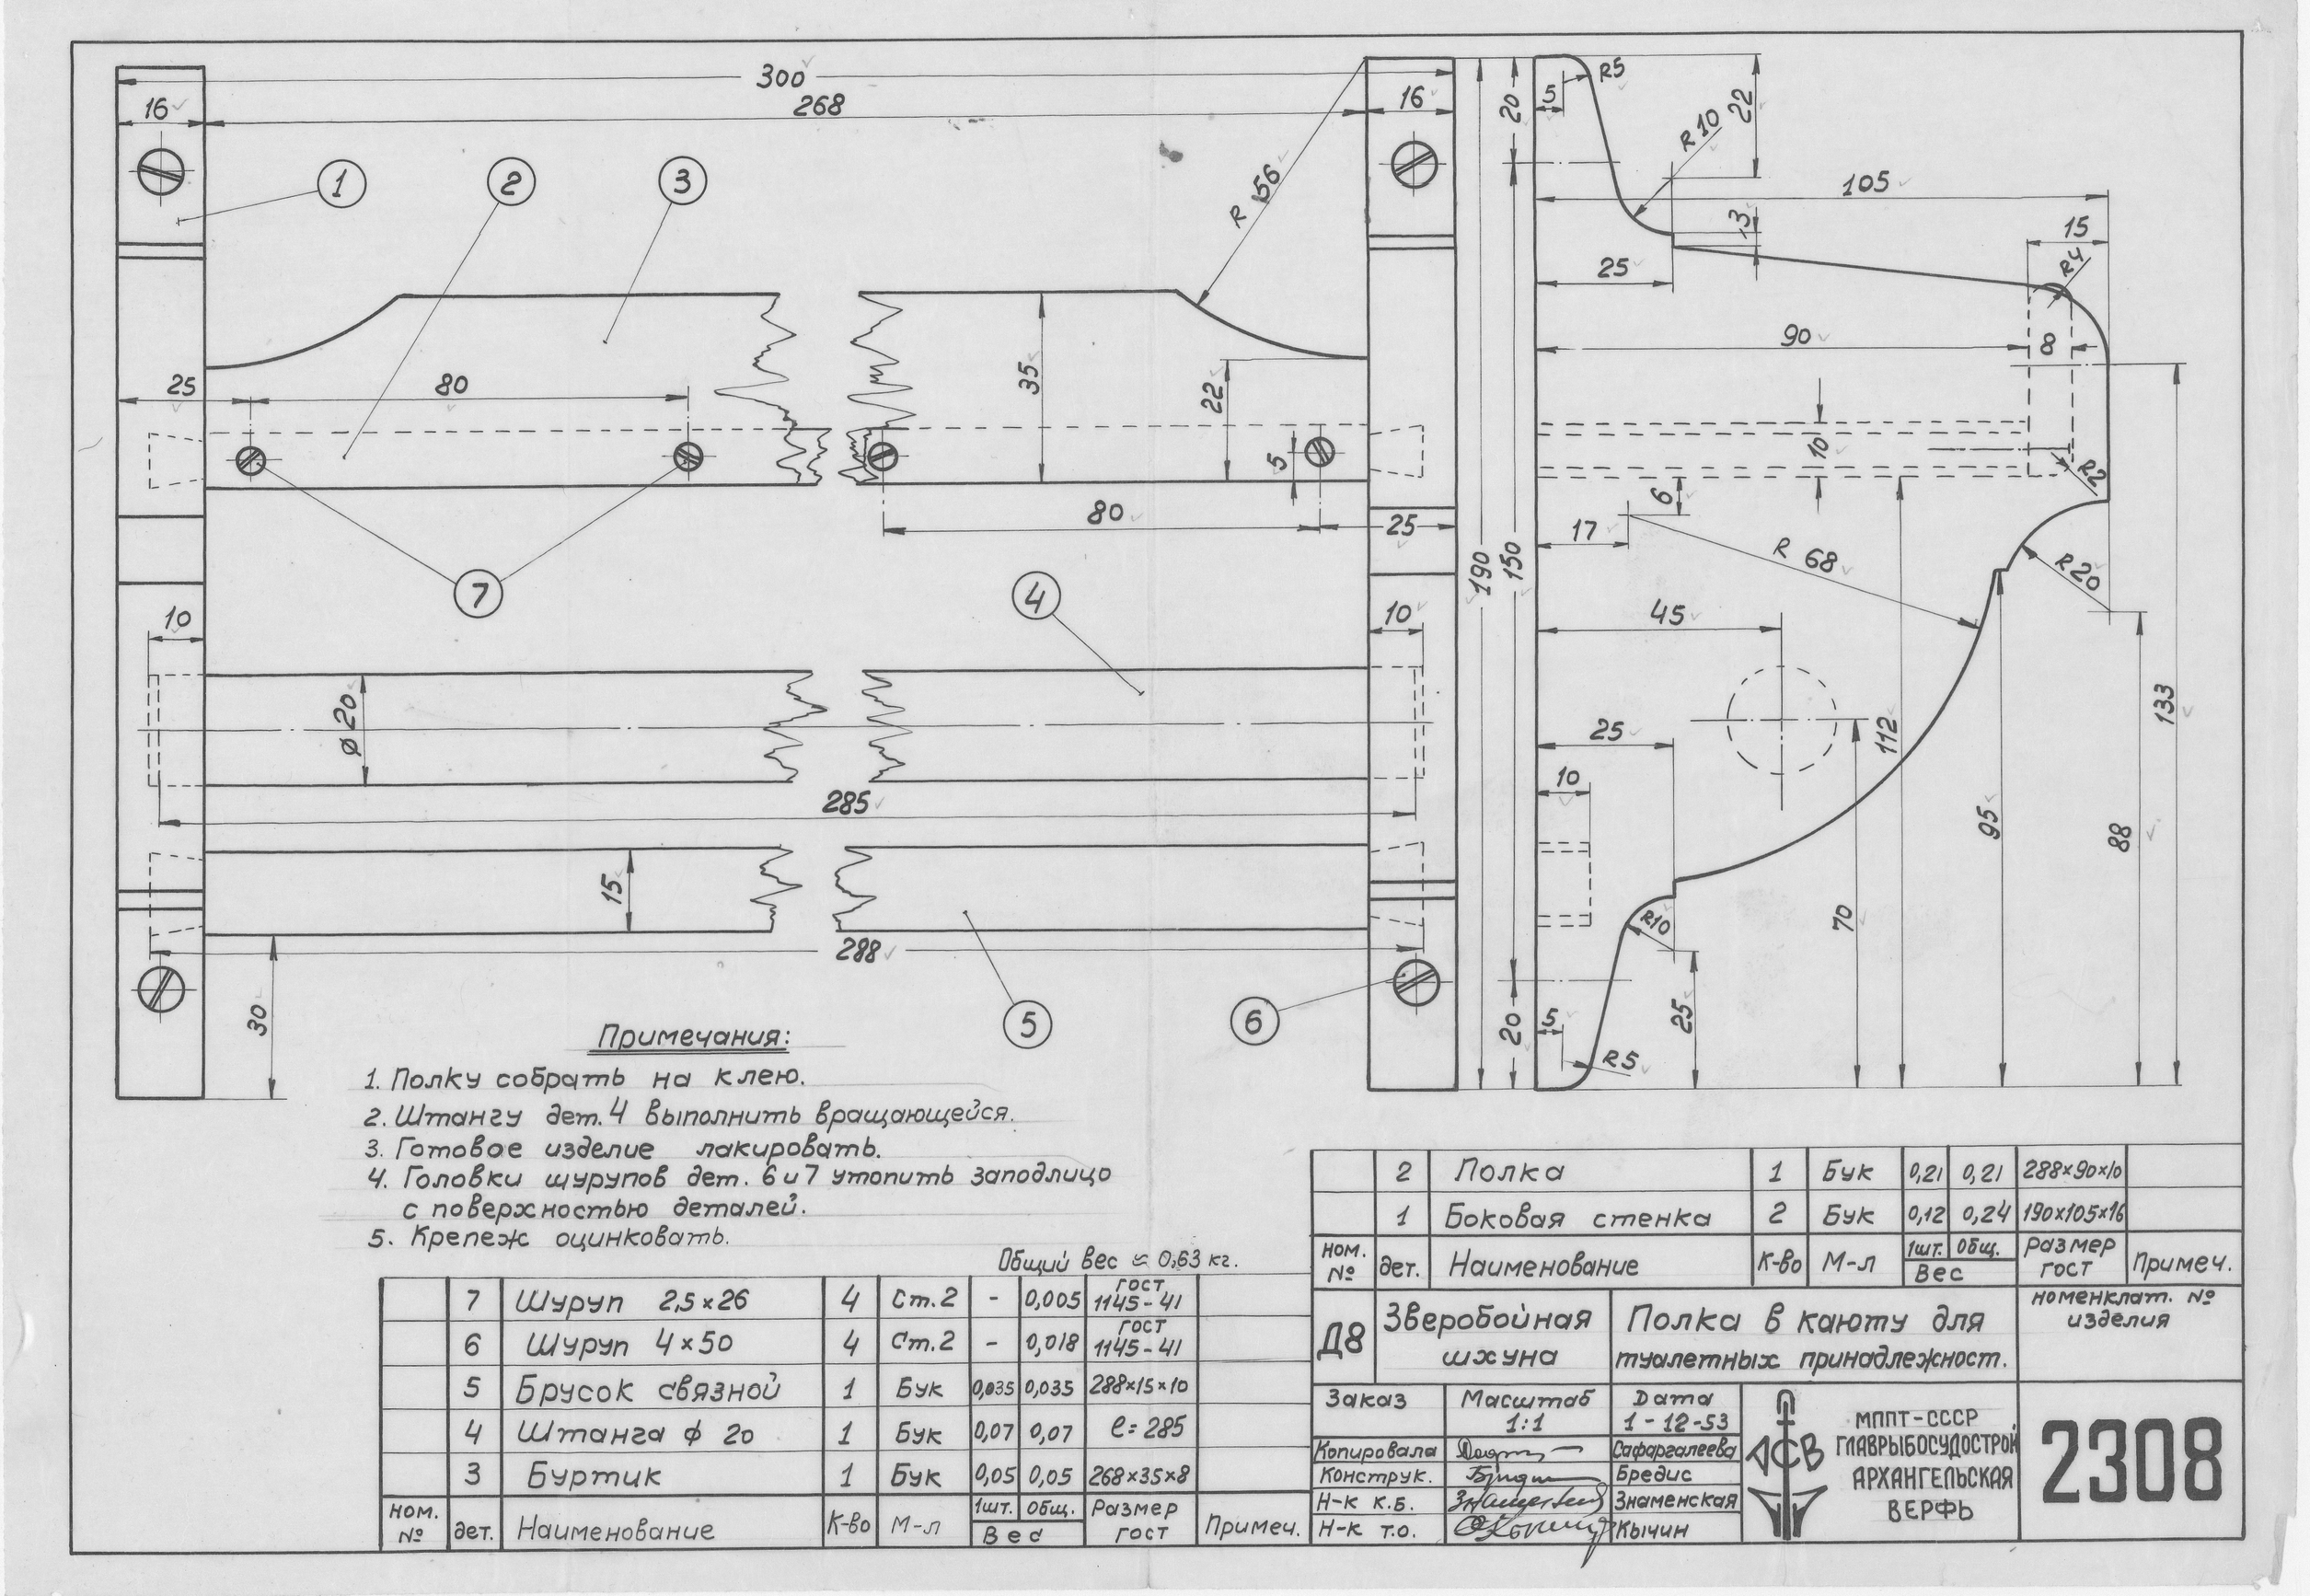 300
268
16
16
1
2
3
R 156
20
5
R5
R 10
22
105
3
15
R4
25
90
8
25
80
35
22
5
10
R2
6
17
80
25
R 68
R 20
190
150
7
4
10
10
45
133
ϕ 20
25
112
285
10
95
88
15
R10
70
288
30
5
6
20
5
25
R5
Примечания:
1. Полку собрать на клею.
2. Штангу дет. 4 выполнить вращающейся.
3. Готовое изделие лакировать.
4. Головки шурупов дет. 6 и 7 утопить заподлицо
с поверхностью деталей.
5. Крепеж оцинковать.
Общий вес ≈ 0,63 кг.
7 Шуруп 2,5×26 4 Ст.2 - 0,005 ГОСТ 1145-41
6 Шуруп 4×50 4 Ст.2 - 0,018 ГОСТ 1145-41
5 Брусок связной 1 Бук 0,035 0,035 288×15×10
4 Штанга ϕ 20 1 Бук 0,07 0,07 ℓ=285
3 Буртик 1 Бук 0,05 0,05 268×35×8
ном. № дет. Наименование К-во М-л 1шт. Общ. Вес Размер ГОСТ Примеч.
2 Полка 1 Бук 0,21 0,21 288×90×10
1 Боковая стенка 2 Бук 0,12 0,24 190×105×16
ном. № дет. Наименование К-во М-л 1шт. Общ. Вес Размер ГОСТ Примеч.
Д8
Зверобойная
шхуна
Полка в каюту для
туалетных принадлежност.
номенклат. №
изделия
Заказ
Масштаб
1:1
Дата
1-12-53
Копировала Сафаргалеева
Конструк. Бредис
Н-к К.Б. Знаменская
Н-к т.о. Кычин
АСВ
МППТ-СССР
ГЛАВРЫБОСУДОСТРОЙ
АРХАНГЕЛЬСКАЯ
ВЕРФЬ
2308